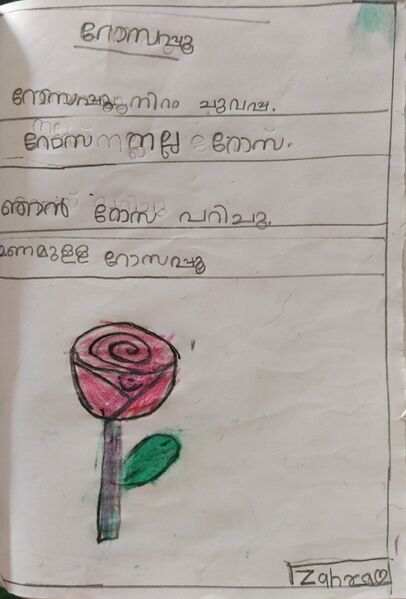 റോസപ്പൂ
റോസപ്പൂ നിറം ചുവപ്പ.
റോസ് നല്ല റോസ്.
ഞാൻ റോസ പറിച്ചു.
മണമുള്ള റോസപ്പൂ
Zahraa